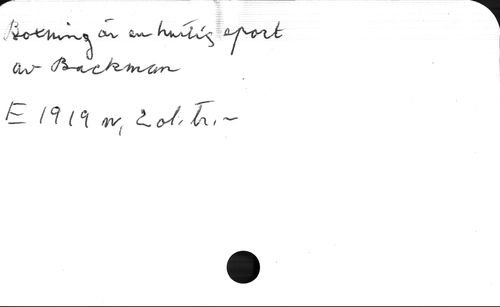 Boxning är en hurtig sport
av Backman
E 1919 nr, 2 ol. tr. ~